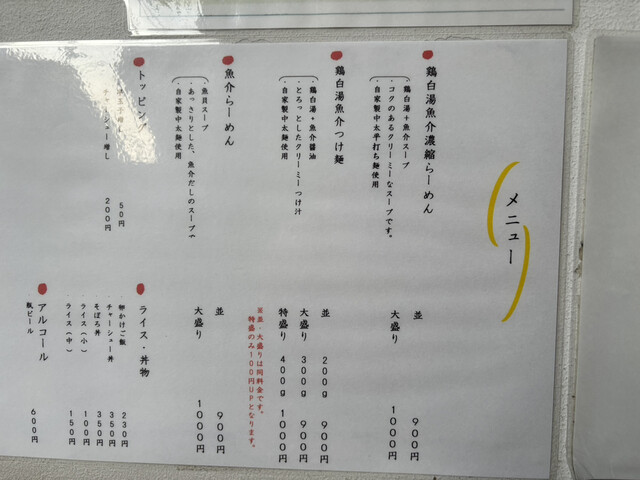 メニュー
鶏白湯魚介濃縮らーめん
鶏白湯＋魚介スープ
・コクのあるクリーミーなスープです。
・自家製中太平打ち麺使用
並 900円
大盛り 1000円
鶏白湯魚介つけ麺
・鶏白湯＋魚介醤油
・とろっとしたクリーミーつけ汁
・自家製中太麺使用
並 200g 900円
大盛り 300g 900円
特盛り 400g 1000円
※並・大盛りは同料金です。
特盛のみ100円UPとなります。
魚介らーめん
・魚貝スープ
・あっさりとした、魚介だしのスープで
・自家製中太麺使用
並 900円
大盛り 1000円
トッピング
味玉子増し 50円
チャーシュー増し 200円
ライス・丼物
・卵かけご飯 230円
・チャーシュー丼 350円
・そぼろ丼 350円
・ライス（小） 100円
・ライス（中） 150円
アルコール
瓶ビール 600円